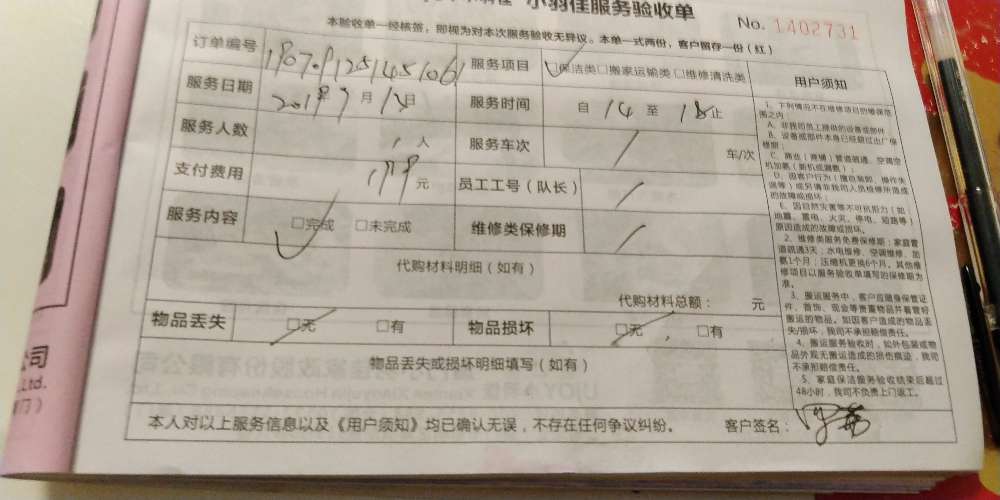 小羽佳服务验收单
No. 1402731
本验收单一经核签，即视为对本次服务验收无异议。本单一式两份，客户留存一份（红）
订单编号 服务项目 保洁类□搬家运输类□维修清洗类 用户须知
服务日期 2019年9月13日 服务时间 自14至18止
服务人数 1人 服务车次 / 车/次
支付费用 199元 员工工号（队长） /
服务内容 □完成 □未完成 维修类保修期 /
代购材料明细（如有）
代购材料总额： 元
物品丢失 □无 □有 物品损坏 □无 □有
物品丢失或损坏明细填写（如有）
1、下列情况不在维修项目的维保范
围之内：
A、非我司员工提供的设备或部件
B、设备或部件本身已经超过出厂保
修期；
C、商业（商铺）管道疏通、空调空
机加氟（新机或漏氟）；
D、因客户行为（擅自装卸、操作失
误等）或另请非我司人员检修所造成
的故障或损坏；
E、因自然灾害等不可抗拒力（如
地震、雷电、火灾、停电、短路等）
原因造成的故障或损坏。
2、维修类服务免费保修期：家庭管
道疏通3天；水电维修、空调维修、加
氟1个月；压缩机更换6个月。其他维
修项目以服务验收单填写的保修期为
准。
3、搬运服务中，客户应随身保管证
件、首饰、现金等贵重物品并看管好
搬运的物品。如因客户造成的物品丢
失/损坏，我司不承担赔偿责任。
4、搬运服务验收时，如外包装或物
品外观无搬运造成的损伤痕迹，我司
不承担赔偿责任。
5、家庭保洁服务验收结束后超过
48小时，我司不负责上门返工。
本人对以上服务信息以及《用户须知》均已确认无误，不存在任何争议纠纷。 客户签名：
公司
.,Ltd.
门）